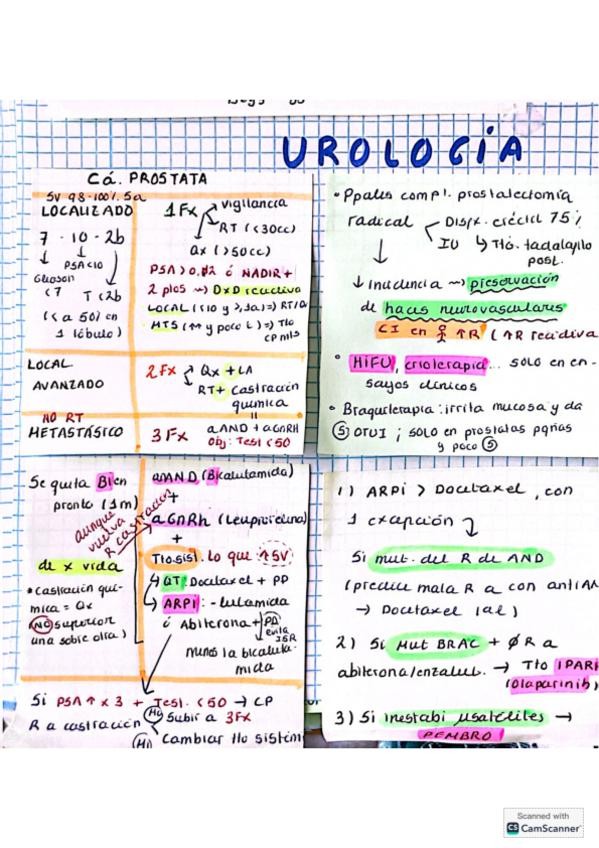 UROLOGIA
Cá. PROSTATA
SV 98-100% 5a
LOCALIZADO
7 · 10 · 2b
PSA<10
Gleason
<7
T<2b
(< a 50% en
1 lóbulo)
1 Fx
vigilancia
RT (<30cc)
Qx (>50cc)
PSA > 0.02 ó NADIR +
2 ptos ⇝ DxD reactiva
LOCAL (<10 y >1a) => RT/Q
MTS (↑↑ y poco t) => Tto
CP mts
LOCAL
AVANZADO
2 Fx
Qx + LA
RT + Castración
química
NO RT
METASTÁSICO
3 Fx
aAND + aGnRH
Obj: Test < 50
• Ppales compl. prostatectomía
radical
Disfx. eréctil 75%
IU
Tto. tadalafilo
post.
↓ Incidencia ⇝ preservación
de haces neurovasculares
CI en ↑R (↑R recidiva
• HIFU, crioterapia... solo en en-
sayos clínicos
• Braquiterapia: irrita mucosa y da
Ⓢ OTUI; solo en prostatas pqñas
y poco Ⓢ
Se quita Bien
pronto (1m)
aunque
vuelva
R castración
de x vida
• castración quí-
mica = Qx
(NO superior
una sobre otra)
aAND (Bicalutamida)
+
aGnRh (Leuprorelina)
+
Tto.sist. lo que ↑SV
QT: Docetaxel + PD
ARPI: -lutamida
ó Abiterona + PD
evita
nunca la bicaluta-
mida
Si PSA ↑ x 3 + Test. < 50 → CP
R a castración
Subir a 3Fx
Cambiar tto sistém
1) ARPi > Docetaxel, con
1 excepción
Si mut. del R de AND
(predice mala R a con antiAN
→ Docetaxel
2) Si Mut BRAC + Ø R a
abiterona/enzalut. → Tto IPARI
(Olaparinib)
3) Si inestabi µsatélites →
PEMBRO
Scanned with
CS CamScanner